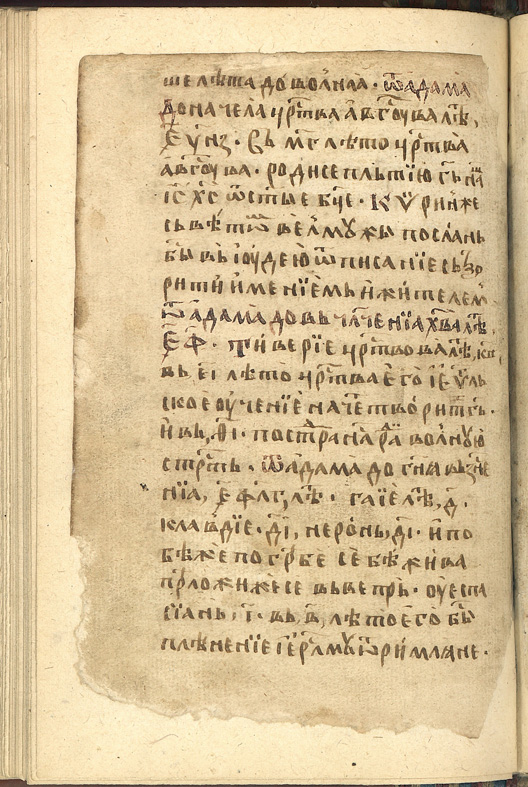 ше лѣта до волнꙗ · ѿ адама
до начела цр҃тва авгоу҃ва лѣ҃,
҂еун҃з · Въ м҃г лѣто цр҃тва
авгоу҃ва · роди се пльтїю г҃ь на҃
іс҃ хс҃ ѿ ст҃ые бц҃е · Кѵринїе
съвѣт ѿ вел мꙋжь послань
бы въ іоудею ѿписанїе съ
рити имѣнїемь и жителем
ѿ адама до въчл҃ченїа хв҃а лѣ҃
҂еф · Тиверїе цр҃твова лѣ҃, кв
въ, еі лѣто цр҃тва его іеѵль
ское оученїе наче творити г҃ь ·
и въ, ѳі · пострада ра волную
стрть · ѿ адама до гн҃а въ
нїа, ҂ефл҃г, лѣ҃ · гаїе лѣ҃, д ·
клавдїе · ді, неронь, ді · и по
бѣже погрбе себѣ жива
прложи же се въ вепрь · оуеспа
сїань · і · въ, в, лѣто его бы
плѣненїе іерлмꙋ ѿ римлꙗне ·